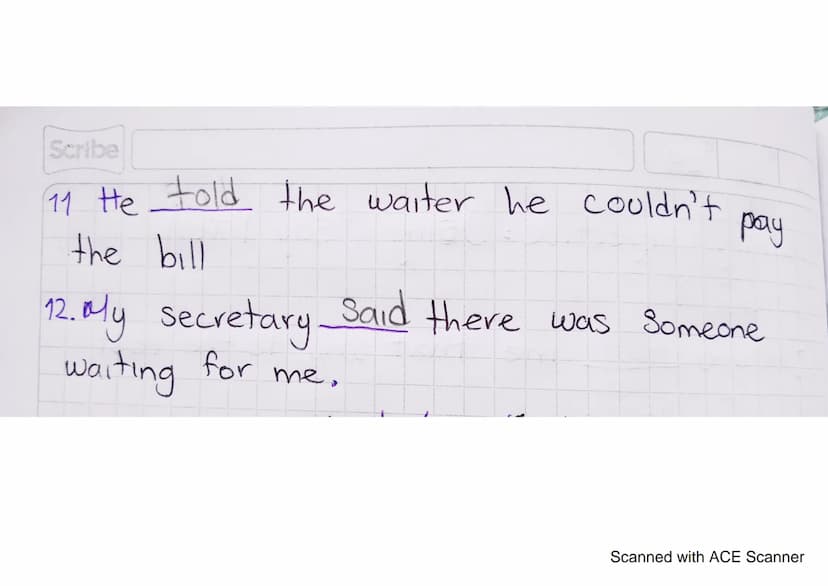 Scribe
11 He told the waiter he couldn't pay
the bill
12. My secretary said there was someone
waiting for me.
Scanned with ACE Scanner